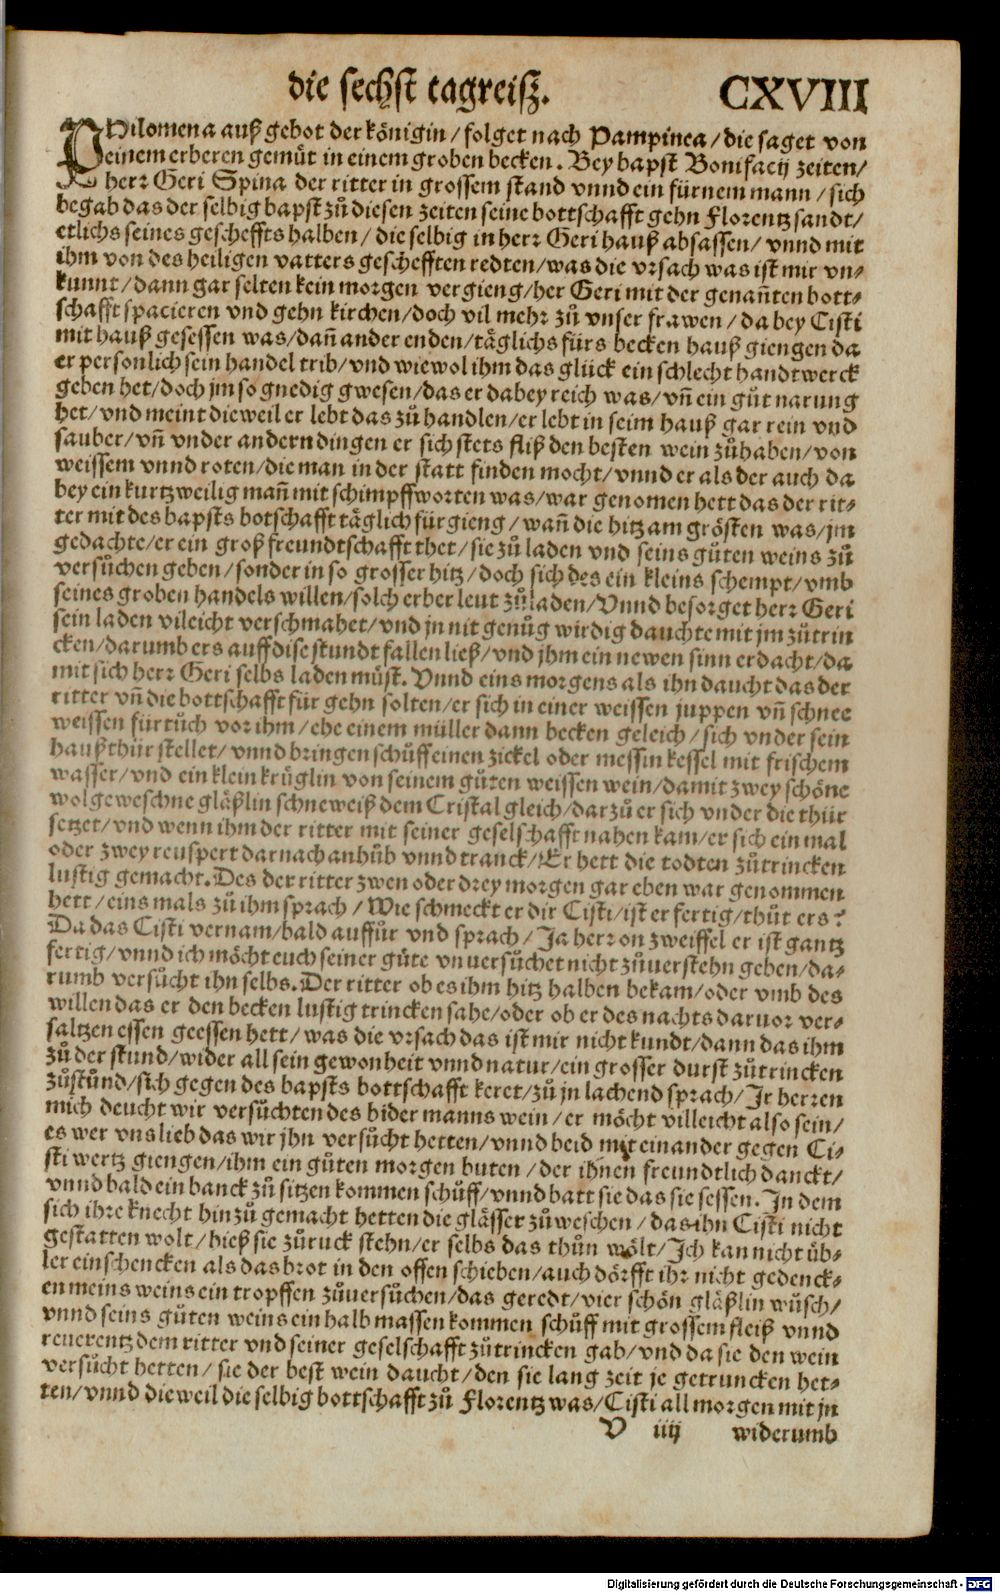 die sechst tagreisz.
CXVIII
PHilomena auß gebot der königin / folget nach Pampinea / die saget von
einem erberen gemüt in einem groben becken. Bey bapst Bonifacij zeiten/
herr Geri Spina der ritter in grossem stand vnnd ein fürnem mann / sich
begab das der selbig bapst zů diesen zeiten seine bottschafft gehn Florentz sandt/
etlichs seines gescheffts halben / die selbig in herr Geri hauß absassen/ vnnd mit
ihm von des heiligen vatters geschefften redten/was die vrsach was ist mir vn⸗
kunnt / dann gar selten kein morgen vergieng/her Geri mit der genañten bott⸗
schafft spacieren vnd gehn kirchen/doch vil mehr zů vnser frawen / da bey Cisti
mit hauß gesessen was/dañ ander enden/täglichs fürs becken hauß giengen da
er personlich sein handel trib/vnd wiewol ihm das glück ein schlecht handtwerck
geben het/doch jm so gnedig gwesen/das er dabey reich was/vñ ein gůt narung
het/vnd meint dieweil er lebt das zů handlen/er lebt in seim hauß gar rein vnd
sauber/vñ vnder andern dingen er sich stets fliß den besten wein zůhaben/von
weissem vnnd roten/die man in der statt finden mocht/vnnd er als der auch da
bey ein kurtzweilig mañ mit schimpffworten was/war genomen hett das der rit⸗
ter mit des bapsts botschafft täglich fürgieng / wañ die hitz am grösten was/jm
gedachte/er ein groß freundtschafft thet/sie zů laden vnd seins gůten weins zů
versůchen geben/sonder in so grosser hitz/doch sich des ein kleins schempt/vmb
seines groben handels willen/solch erber leut zů laden/Vnnd besorget herr Geri
sein laden vileicht verschmahet/vnd jn nit genůg wirdig dauchte mit jm zůtrin
cken/darumb ers auff dise stundt fallen ließ/vnd jhm ein newen sinn erdacht/da
mit sich herr Geri selbs laden můst. Vnnd eins morgens als ihn daucht das der
ritter vñ die bottschafft für gehn solten/er sich in einer weissen juppen vñ schnee
weissen fürtůch vor ihm / ehe einem müller dann becken geleich / sich vnder sein
haußthür stellet/ vnnd bringen schůff einen zickel oder messin kessel mit frischem
wasser/vnd ein klein krüglin von seinem gůten weissen wein/damit zwey schöne
wolgeweschne gläßlin schneweiß dem Cristal gleich/darzů er sich vnder die thür
setzet/vnd wenn ihm der ritter mit seiner geselschafft nahen kam/er sich ein mal
oder zwey reuspert darnach anhůb vnnd tranck/Er hett die todten zůtrincken
lustig gemacht. Des der ritter zwen oder drey morgen gar eben war genommen
hett/eins mals zů ihm sprach / Wie schmeckt er dir Cisti/ist er fertig/thůt ers?
Da das Cisti vernam/bald auffůr vnd sprach/Ja herr on zweiffel er ist gantz
fertig/vnnd ich möcht euch seiner güte vnuersůchet nicht zůverstehn geben/da⸗
rumb versůcht ihn selbs. Der ritter ob es ihm hitz halben bekam/oder vmb des
willen das er den becken lustig trincken sahe/oder ob er des nachts daruor ver⸗
saltzen essen geessen hett/was die vrsach das ist mir nicht kundt/dann das ihm
zů der stund/wider all sein gewonheit vnnd natur/ein grosser durst zůtrincken
zůstůnd/sich gegen des bapsts bottschafft keret/zů jn lachend sprach/Jr herren
mich deucht wir versůchten des bidermanns wein/er möcht villeicht also sein/
es wer vns lieb das wir jhn versůcht hetten/vnnd beid mit einander gegen Ci⸗
sti wertz giengen/ihm ein gůten morgen buten / der ihnen freundtlich danckt/
vnnd bald ein banck zů sitzen kommen schůff/vnnd batt sie das sie sessen. Jn dem
sich ihre knecht hinzů gemacht hetten die glässer zůweschen / das ihn Cisti nicht
gestatten wolt/hieß sie zůruck stehn/er selbs das thůn wölt/Jch kan nicht üb⸗
ler einschencken als das brot in den offen schieben/auch dörfft ihr nicht gedenck⸗
en meins weins ein tropffen zůversůchen/das geredt/vier schön gläßlin wůsch/
vnnd seins gůten weins ein halb massen kommen schůff mit grossem fleiß vnnd
reuerentz dem ritter vnd seiner geselschafft zůtrincken gab/vnd da sie den wein
versůcht hetten/ sie der best wein daucht/den sie lang zeit je getruncken het⸗
ten/vnnd dieweil die selbig bottschafft zů Florentz was/Cisti all morgen mit jn
V iiij widerumb
Digitalisierung gefördert durch die Deutsche Forschungsgemeinschaft - DFG